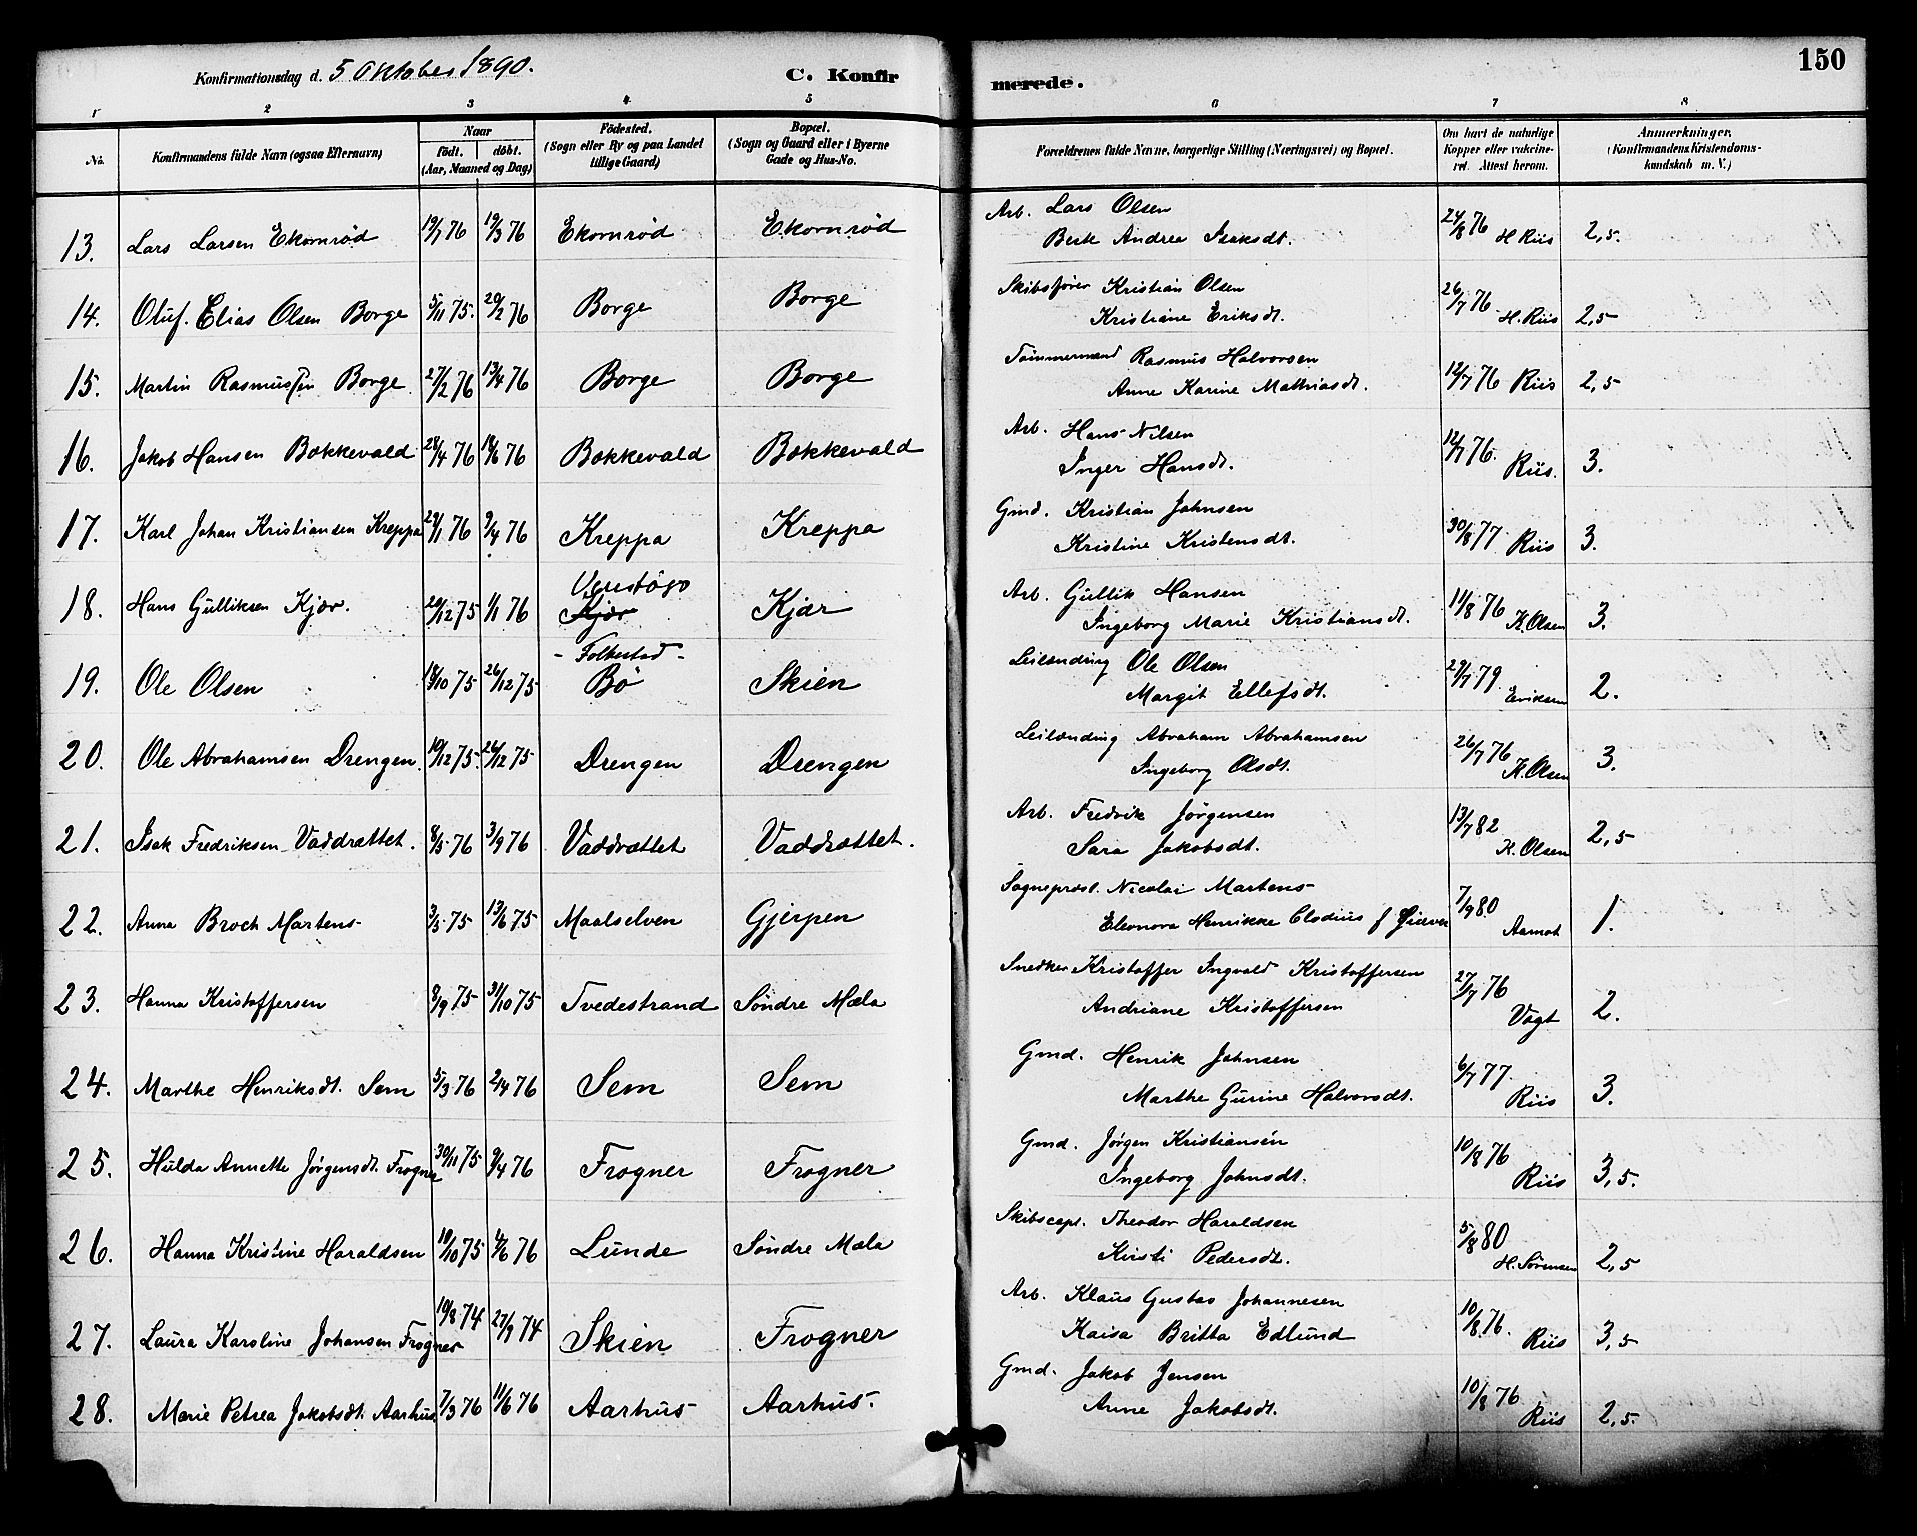 Konfirmationsdag d. 5 Oktober 1890. C. Konfirmerede. 150
1 2 3 4 5 6 7 8
No. Konfirmandens fulde Navn (ogsaa Efternavn) Naar födt. döbt. (Aar, Maaned og Dag) Födested. (Sogn eller By og paa Landet tillige Gaard) Bopæl. (Sogn og Gaard eller i Byerne Gade og Hus-No. Forældrenes fulde Navne, borgerlige Stilling (Næringsvei) og Bopæl. Om havt de naturlige Kopper eller vakcineret. Attest herom. Anmærkninger. (Konfirmandens Kristendomskundskab m. V.)
13. Lars Larsen Ekornrød 19/1 76 19/3 76 Ekornrød Ekornrød Arb. Lars Olsen 24/8 76 H Riis 2,5.
Berte Andrea Isaksdt.
14. Oluf Elias Olsen Borge 5/11 75. 20/2 76 Borge Borge Skibsfører Kristian Olsen 26/7 76 H. Riis 2,5
Kristiane Eriksdt.
15. Martin Rasmussen Borge 27/2 76 13/4 76 Borge Borge Tømmermand Rasmus Halvorsen 12/7 76 Riis 2,5
Anne Karine Mathiasdt.
16. Jakob Hansen Bokkevald 28/4 76 18/6 76 Bokkevald Bokkevald Arb. Hans Nilsen 12/7 76. Riis. 3.
Inger Hansdt.
17. Karl Johan Kristiansen Kreppa 29/1 76 9/4 76 Kreppa Kreppa Gmd. Kristian Johnsen 30/8 77 Riis 3.
Kristine Kristensdt.
18. Hans Gulliksen Kjær. 20/12 75 1/1 76 Kjær Kjær Arb. Gullik Hansen 11/8 76 K. Olsen 3.
Ingeborg Marie Kristiansdt.
19. Ole Olsen 18/10 75 26/12 75 - Folkestad - Bø Skien Leilænding Ole Olsen 29/7 79 Eriksen 2.
Margit Ellefsdt.
20. Ole Abrahamsen Drengen. 10/12 75. 26/12 75 Drengen Drengen Leilænding Abraham Abrahamsen 26/7 76 K. Olsen 3.
Ingeborg Olsdt.
21. Isak Fredriksen Vaddrættet. 8/5 76 3/9 76 Vaddrættet Vaddrættet. Arb. Fredrik Jørgensen 13/7 82 K. Olsen 2,5
Sara Jakobsdt.
22. Anna Broch Martens 3/5 75 13/6 75 Maalselven Gjerpen Sognepræst. Nicolai Martens 7/9 80 Aamot 1.
Eleonora Henrikke Clodius f
23. Hanna Kristoffersen 8/9 75 31/10 75 Tvedestrand Søndre Mæla Snedker Kristoffer Ingvald Kristoffersen 27/7 76 Vogt 2.
Andriane Kristoffersen
24. Marthe Henriksdt. Sem 5/3 76 2/4 76 Sem Sem Gmd. Henrik Johnsen 6/7 77 Riis 3.
Marthe Gurine Halvorsdt.
25. Hulda Annette Jørgensdt. Frogner 30/11 75 9/4 76 Frogner Frogner Gmd. Jørgen Kristiansen 10/8 76 Riis 3,5.
Ingeborg Johnsdt.
26. Hanna Kristine Haraldsen 10/10 75 4/6 76 Lunde Søndre Mæla Skibscapt. Theodor Haraldsen 5/8 80 H. Sørensen 2,5
Kirsti Pedersdt.
27. Laura Karoline Johansen Frogner 10/8 74 27/9 74 Skien Frogner Arb. Klaus Gustav Johannesen 10/8 76. Riis 3,5
Kaisa Britta Edlund
28. Marie Petrea Jakobsdt. Aarhus 7/3 76 11/6 76 Aarhus Aarhus. Gmd. Jakob Jensen 10/8 76 Riis 2,5.
Anne Jakobsdt.